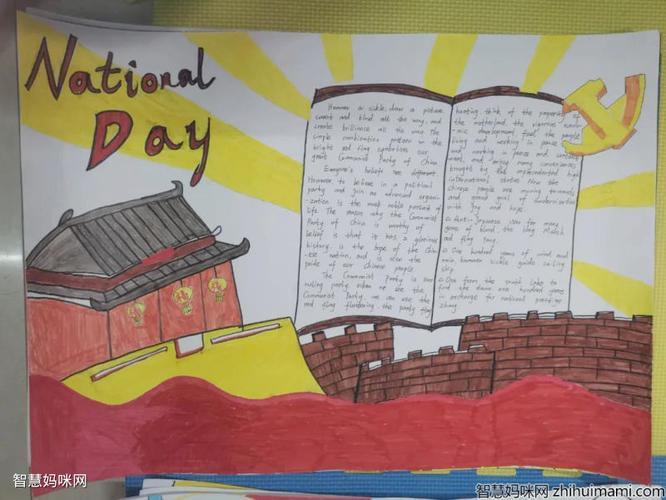 National
Day
Hammer or sickle, draw a picture
sweat and blood all the way, and
create brilliance all the way. The
simple combination pattern on the
bright red flag symbolizes our
great Communist Party of China
Everyone's beliefs are different.
However, to believe in a political
party and join an advanced organi-
-zation is the most noble pursuit of
life. The reason why the Communist
Party of China is worthy of
belief is that it has a glorious
history, is the hope of the Chin
-ese nation, and is also the
pride of our chinese people.
The Communist Party is our
ruling party. When we see the
Communist Party, we can see the
red flag fluttering. the party flag
heating, think of the prosperity of
the motherland, the vigorous econo-
-mic development, feel the people
living and working in peace
and working in peace and
work, and enjoy many conveniences
brought by the unprecedented high
international status. Now the
chinese people are moving towards
and grand goal of modernization
with joy and hope.
war for many
years of blood, the
red flag
One hundred years of wind and
rain, hammer sickle guide
ship
One from the south lake to
find the dawn, one hundred years
in exchange for national prestige
智慧妈咪网
智慧妈咪网 zhihuimami.com